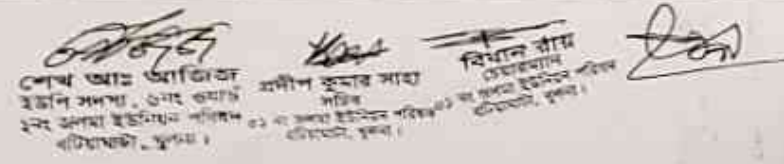 শেখ আঃ আজিজ
ইউপি সদস্য, ৬নং ওয়ার্ড
১নং জলমা ইউনিয়ন পরিষদ
বটিয়াঘাটা, খুলনা।
প্রদীপ কুমার সাহা
সচিব
০১ নং জলমা ইউনিয়ন পরিষদ
বটিয়াঘাটা, খুলনা।
বিধান রায়
চেয়ারম্যান
০১ নং জলমা ইউনিয়ন পরিষদ
বটিয়াঘাটা, খুলনা।